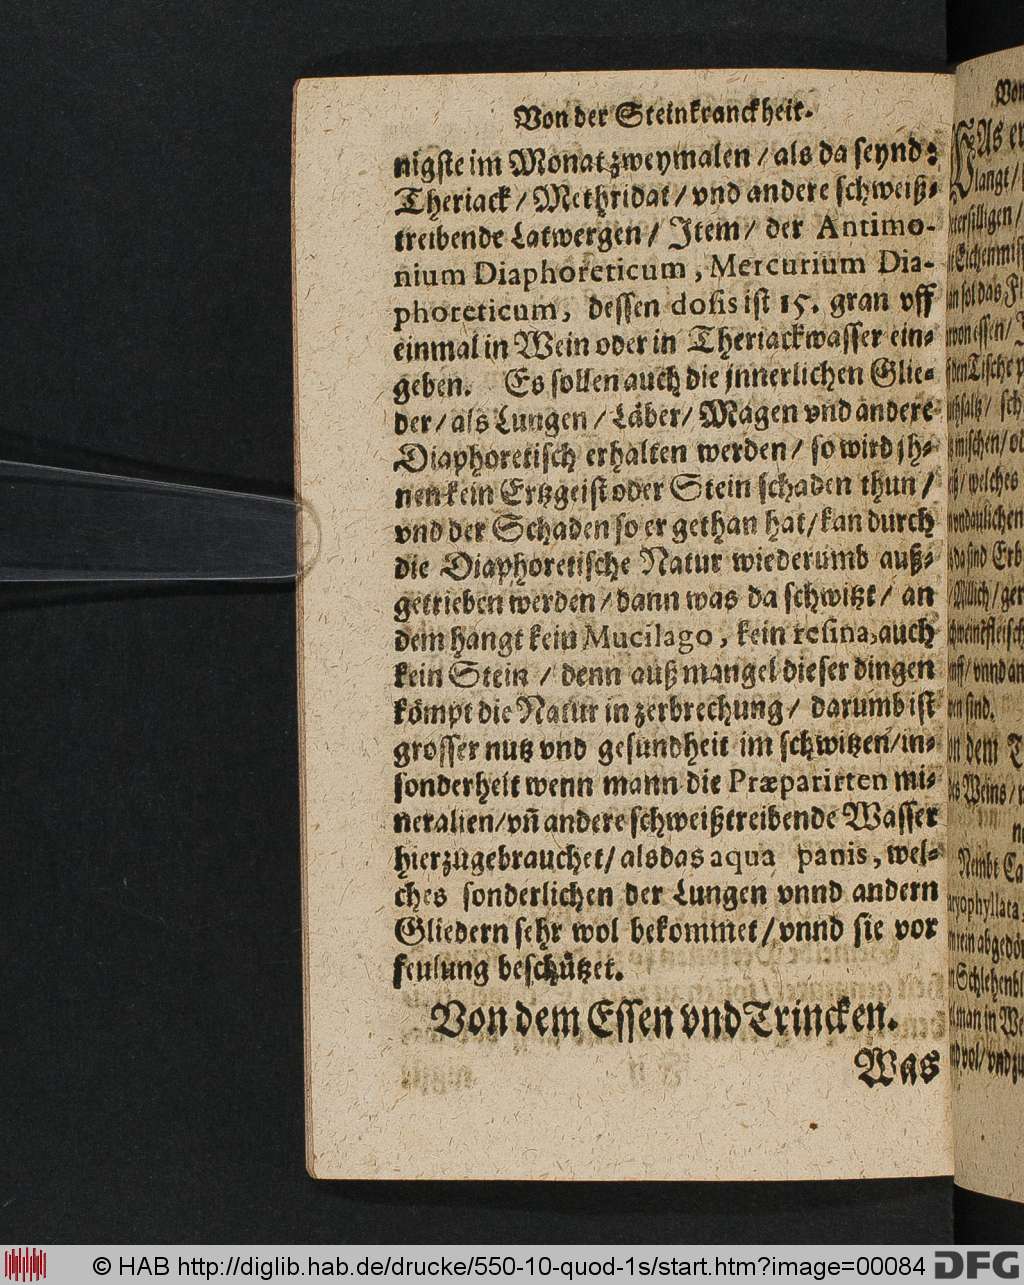 Von der Steinkranckheit.
nigste im Monat zweymalen / als da seynd:
Theriack / Methridat / vnd andere schweiß-
treibende Latwergen / Item / der Antimo-
nium Diaphoreticum, Mercurium Dia-
phoreticum, dessen dosis ist 15. gran vff
einmal in Wein oder in Theriackwasser ein-
geben. Es sollen auch die jnnerlichen Glie-
der / als Lungen / Läber / Magen vnd andere
Diaphoretisch erhalten werden / so wird jh-
nen kein Ertzgeist oder Stein schaden thun /
vnd der Schaden so er gethan hat / kan durch
die Diaphoretische Natur wiederumb auß-
getrieben werden / dann was da schwitzt / an
dem hangt kein Mucilago, kein resina, auch
kein Stein / denn auß mangel dieser dingen
kömpt die Natur in zerbrechung / darumb ist
grosser nutz vnd gesundheit im schwitzen / in-
sonderheit wenn mann die Præparirten mi-
neralien / vñ andere schweißtreibende Wasser
hierzu gebrauchet / als das aqua panis, wel-
ches sonderlichen der Lungen vnnd andern
Gliedern sehr wol bekommet / vnnd sie vor
feulung beschützet.
Von dem Essen vnd Trincken.
Was
© HAB http://diglib.hab.de/drucke/550-10-quod-1s/start.htm?image=00084
DFG